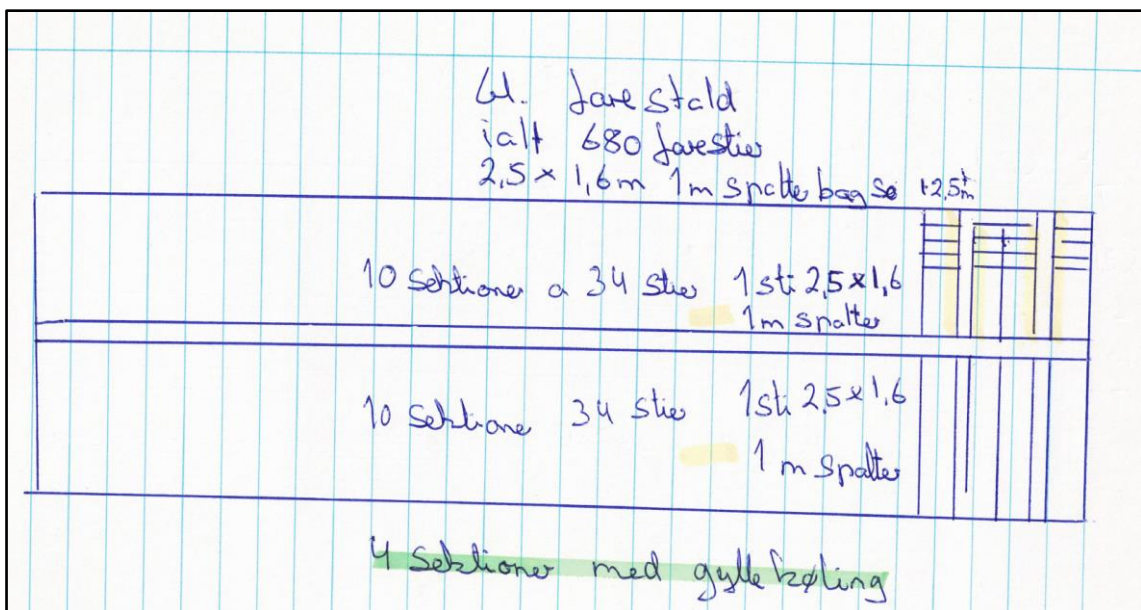 Gl. farestald
ialt 680 farestier
2,5 x 1,6m 1m spalter bag so
10 sektioner a 34 stier 1 sti 2,5 x 1,6
1m spalter
10 sektione 34 stier 1 sti 2,5 x 1,6
1 m spalter
4 sektioner med gyllekøling